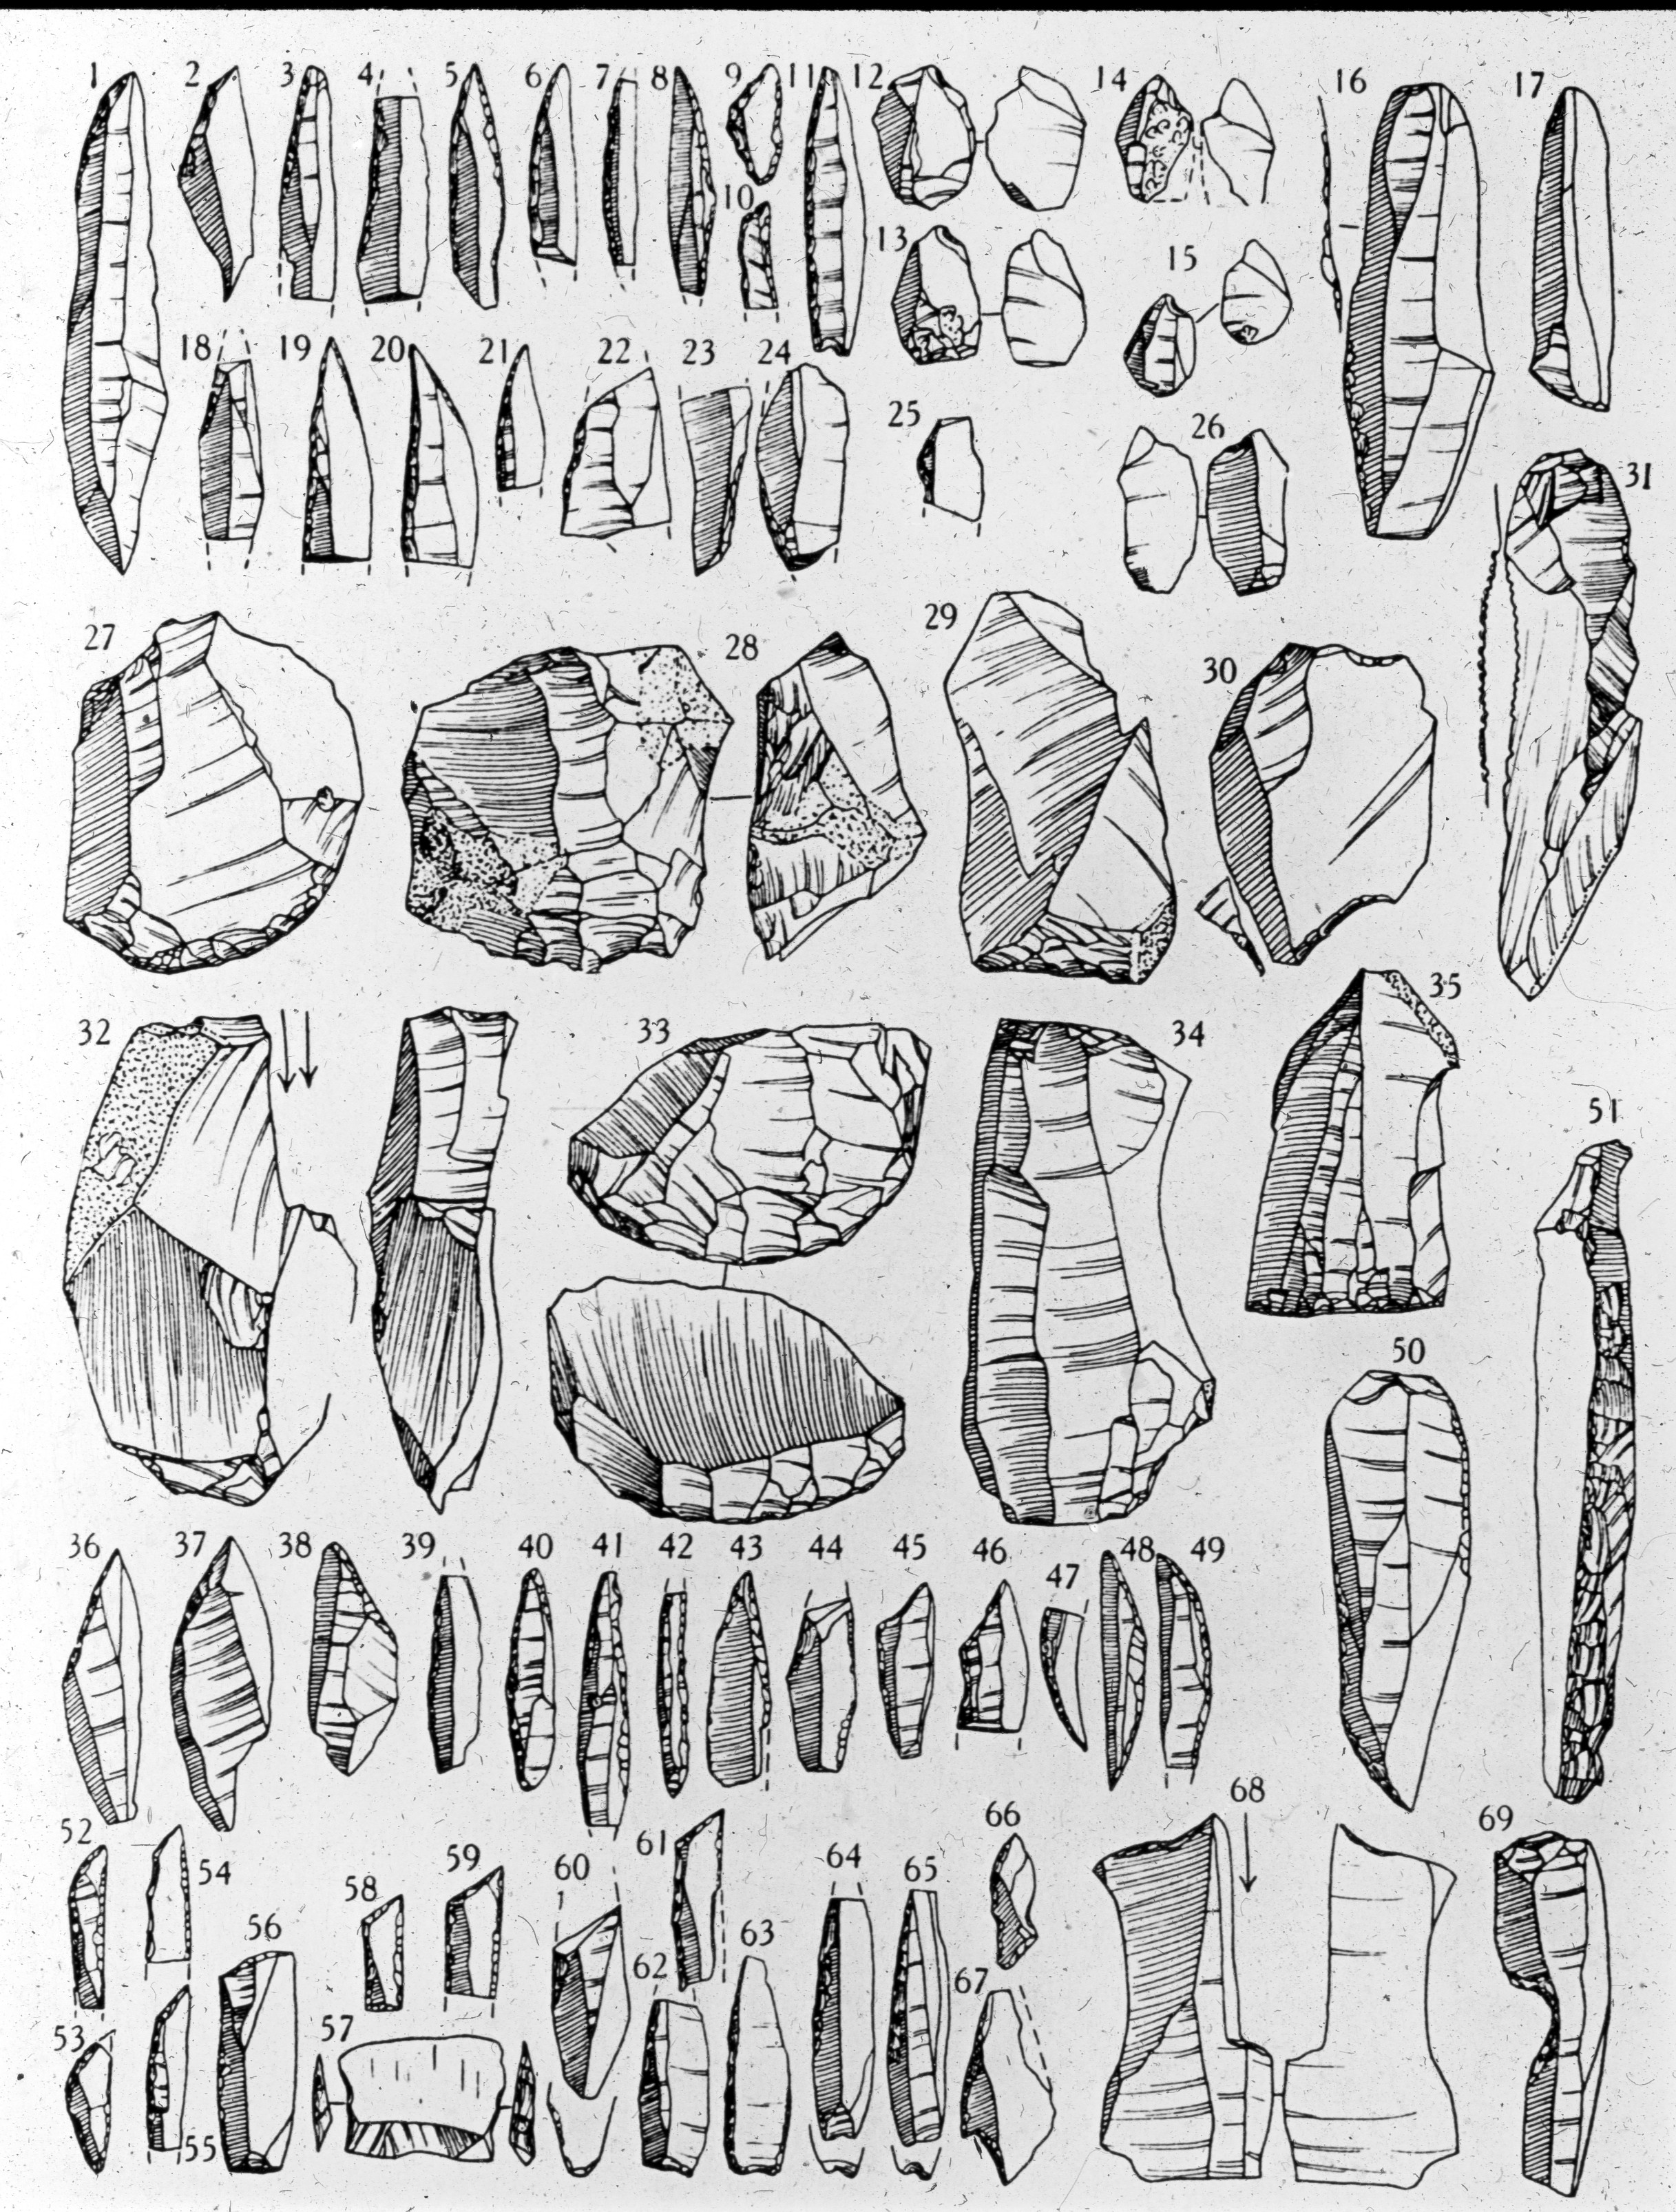 1 2 3 4 5 6 7 8 9 11 12 14 16 17
10
13 15
18 19 20 21 22 23 24
25 26
31
27 28 29 30
35
32 33 34
51
50
36 37 38 39 40 41 42 43 44 45 46 47 48 49
68
52 54 58 59 60 61 64 65 66 69
56 63
62
53 57 67
55